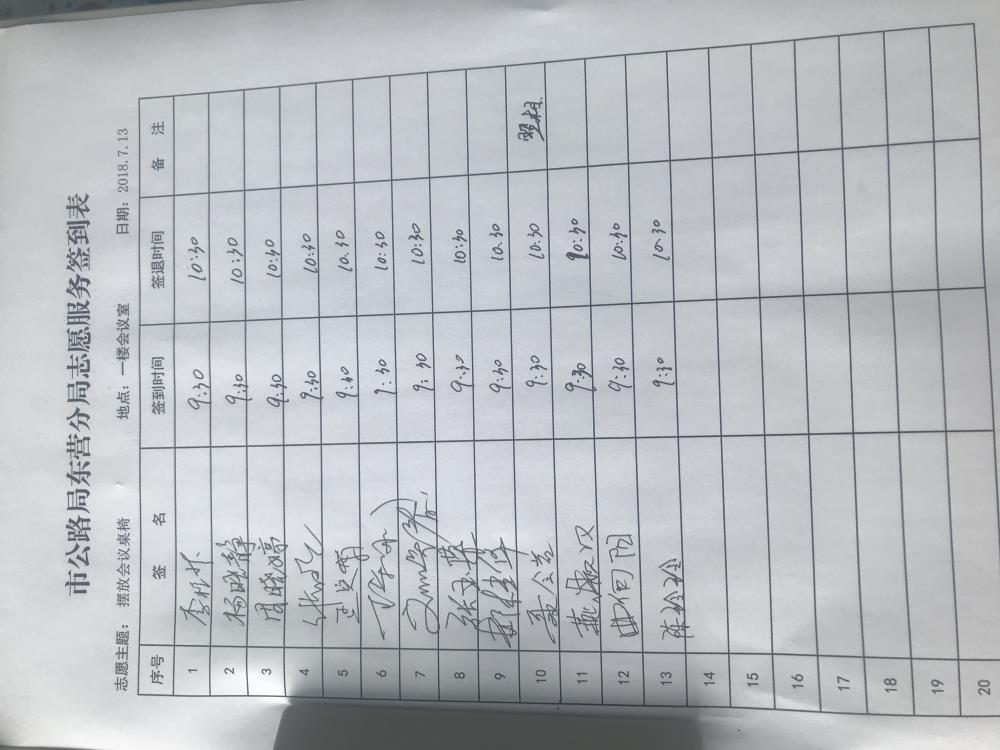 市公路局东营分局志愿服务签到表
志愿主题： 摆放会议桌椅 地点：一楼会议室 日期：2018.7.13
序号 签 名 签到时间 签退时间 备 注
1 9:30 10:30
2 杨晓静 9:30 10:30
3 周晓婷 9:30 10:30
4 9:30 10:30
5 9:30 10.30
6 9:30 10:30
7 9:30 10:30
8 张玉英 9:30 10:30
9 9:30 10.30
10 9:30 10.30
11 9:30 10:30
12 9:30 10:30
13 陈玲玲 9:30 10.30
14
15
16
17
18
19
20